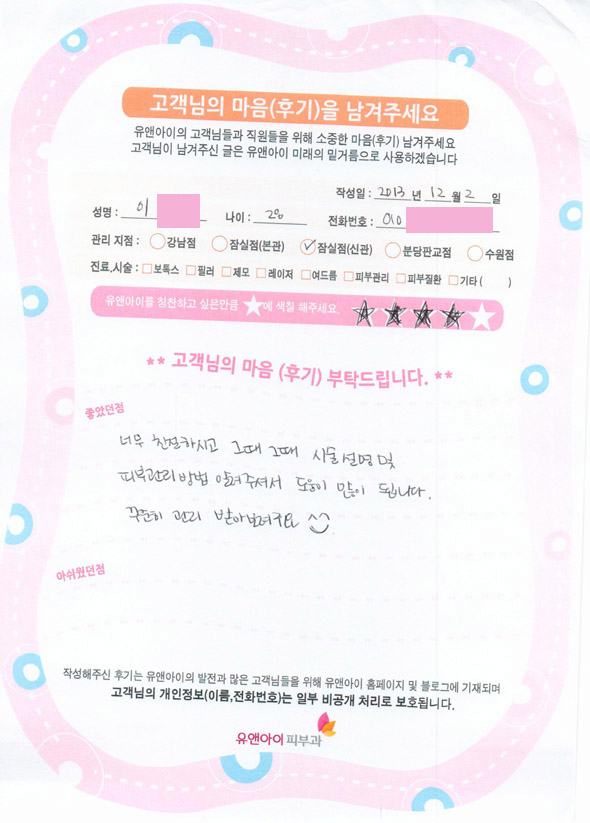 고객님의 마음(후기)을 남겨주세요
유앤아이의 고객님들과 직원들을 위해 소중한 마음(후기) 남겨주세요
고객님이 남겨주신 글은 유앤아이 미래의 밑거름으로 사용하겠습니다
작성일 : 2013 년 12 월 2 일
성명 : 이 나이 : 20 전화번호 : 010
관리 지점 : 강남점 잠실점(본관) 잠실점(신관) 분당판교점 수원점
진료,시술 : 보톡스 필러 제모 레이저 여드름 피부관리 피부질환 기타 ( )
유앤아이를 칭찬하고 싶은만큼 ★에 색칠 해주세요.
** 고객님의 마음 (후기) 부탁드립니다. **
좋았던점
너무 친절하시고 그때 그때 시술설명 및
피부관리 방법 알려주셔서 도움이 많이 됩니다.
꾸준히 관리 받아보려구요 ^^
아쉬웠던점
작성해주신 후기는 유앤아이의 발전과 많은 고객님들을 위해 유앤아이 홈페이지 및 블로그에 기재되며
고객님의 개인정보(이름,전화번호)는 일부 비공개 처리로 보호됩니다.
유앤아이피부과